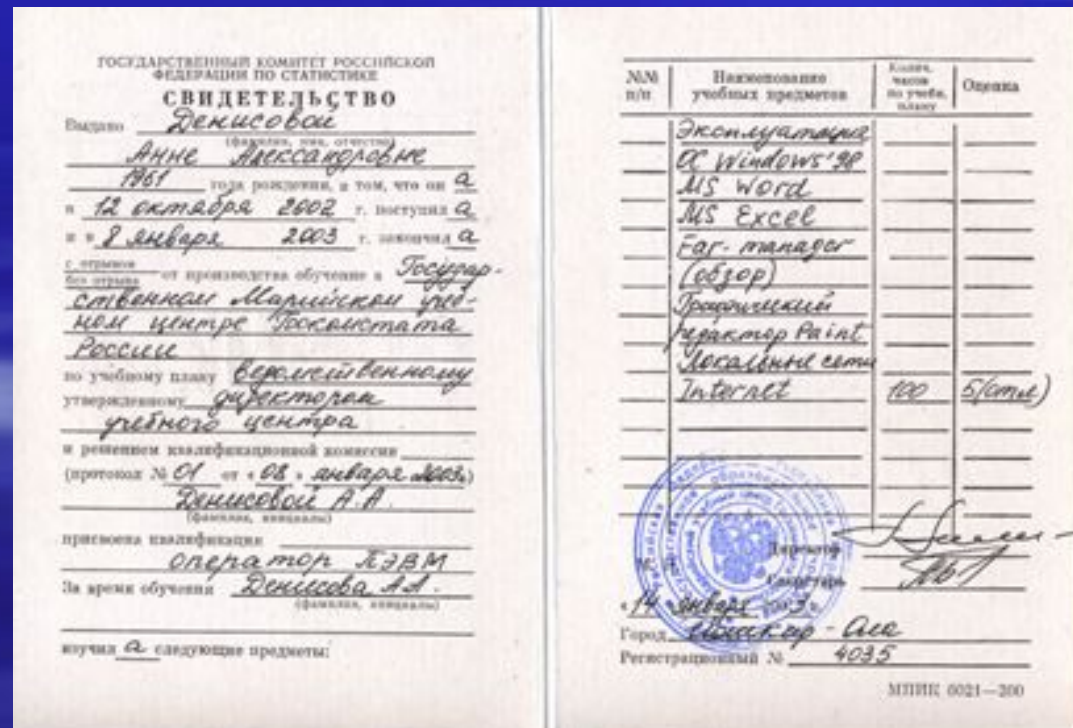 ГОСУДАРСТВЕННЫЙ КОМИТЕТ РОССИЙСКОЙ
ФЕДЕРАЦИИ ПО СТАТИСТИКЕ
СВИДЕТЕЛЬСТВО
Выдано Денисовой
(фамилия, имя, отчество)
Анне Александровне
1961 года рождения, в том, что он а
в 12 октября 2002 г. поступил а
и в 8 января 2003 г. закончил а
с отрывом
без отрыва от производства обучение в Государ-
ственном Марийском учеб-
ном центре Госкомстата
России
по учебному плану ведомственному
утвержденному директором
учебного центра
и решением квалификационной комиссии
(протокол № 01 от «08» января 2003г.)
Денисовой А.А.
(фамилия, инициалы)
присвоена квалификация
оператор ПЭВМ
За время обучения Денисова А.А.
(фамилия, инициалы)
изучил а следующие предметы:
№№ п/п Наименование учебных предметов Колич. часов по учебн. плану Оценка
Эксплуатация
ОС Windows'98
MS Word
MS Excel
Far-manager
(обзор)
Графический
редактор Paint
Локальные сети
Internet 100 5(отл)
Директор
М. П.
Секретарь
«14» января 2003г.
Город Йошкар-Ола
Регистрационный № 4035
МПИК 6021—200